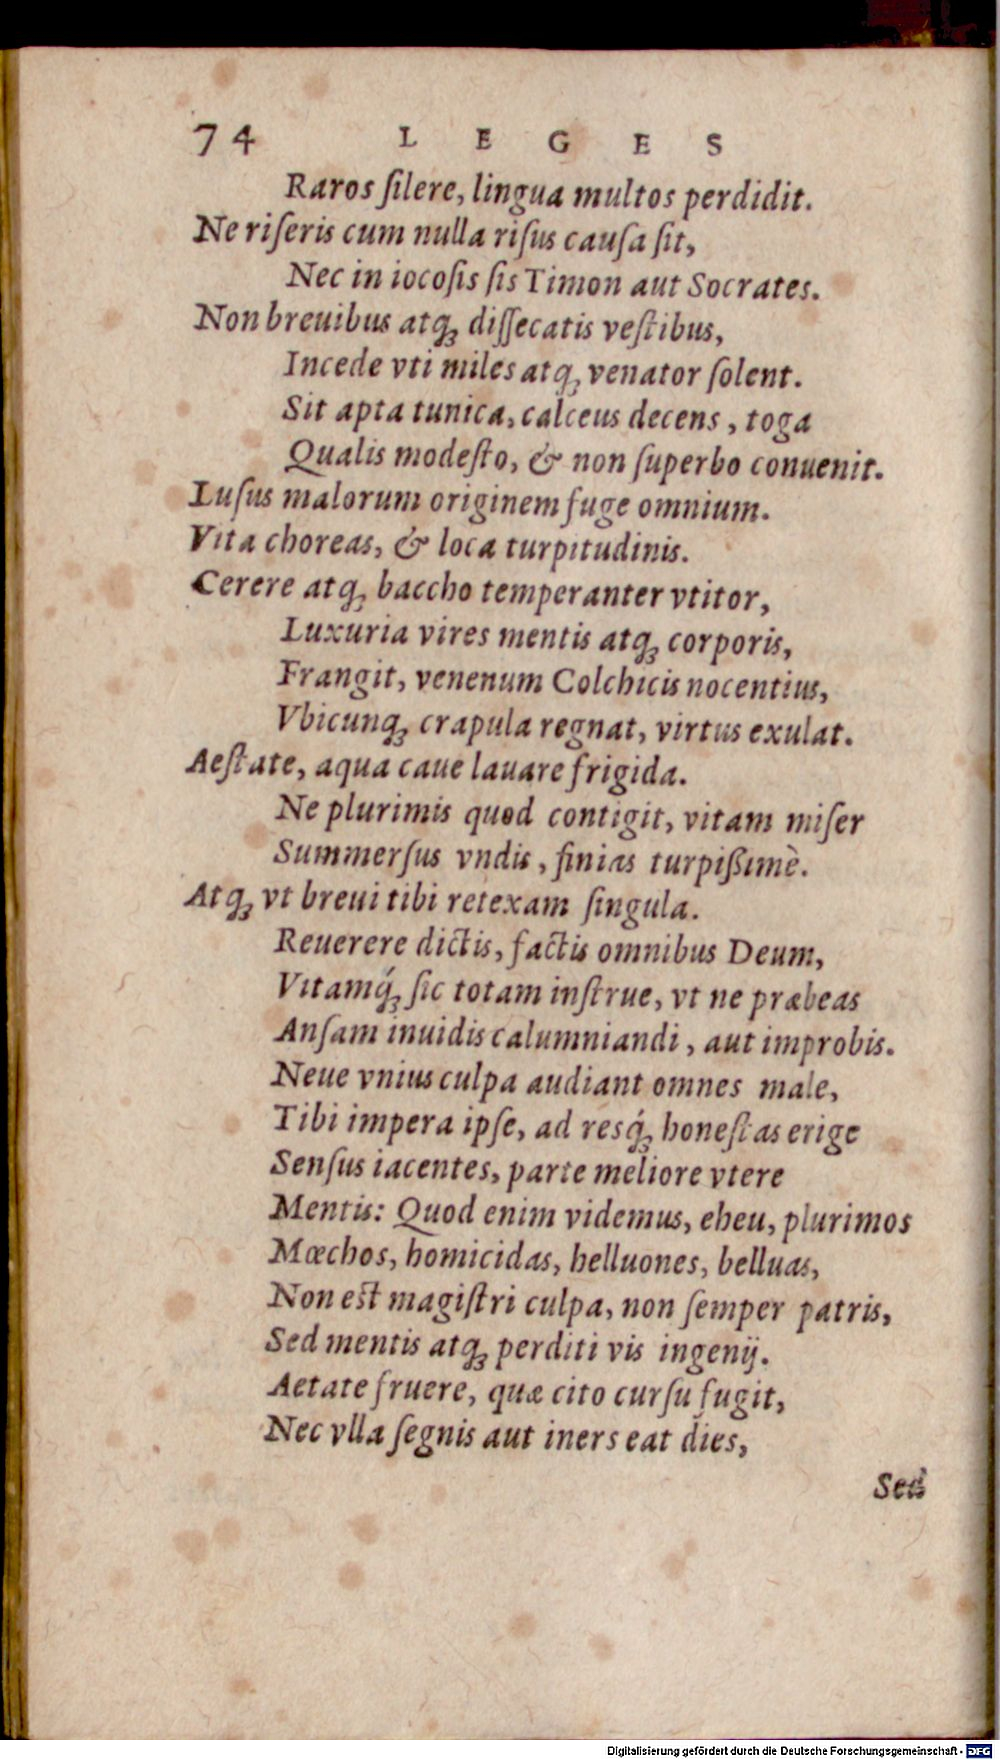 74 LEGES
Raros ſilere, lingua multos perdidit.
Ne riſeris cum nulla riſus cauſa ſit,
Nec in iocoſis ſis Timon aut Socrates.
Non breuibus atq́; diſſecatis veſtibus,
Incede vti miles atq; venator ſolent.
Sit apta tunica, calceus decens, toga
Qualis modeſto, & non ſuperbo conuenit.
Luſus malorum originem fuge omnium.
Vita choreas, & loca turpitudinis.
Cerere atq; baccho temperanter vtitor,
Luxuria vires mentis atq; corporis,
Frangit, venenum Colchicis nocentius,
Vbicunq; crapula regnat, virtus exulat.
Aeſtate, aqua caue lauare frigida.
Ne plurimis quod contigit, vitam miſer
Summerſus vndis, finias turpißimè.
Atq; vt breui tibi retexam ſingula.
Reuerere dictis, factis omnibus Deum,
Vitamq́; ſic totam inſtrue, vt ne præbeas
Anſam inuidis calumniandi, aut improbis.
Neue vnius culpa audiant omnes male,
Tibi impera ipſe, ad resq́; honeſtas erige
Senſus iacentes, parte meliore vtere
Mentis: Quod enim videmus, eheu, plurimos
Mœchos, homicidas, helluones, belluas,
Non eſt magiſtri culpa, non ſemper patris,
Sed mentis atq; perditi vis ingenij.
Aetate fruere, quæ cito curſu fugit,
Nec vlla ſegnis aut iners eat dies,
Sed
Digitalisierung gefördert durch die Deutsche Forschungsgemeinschaft - DFG